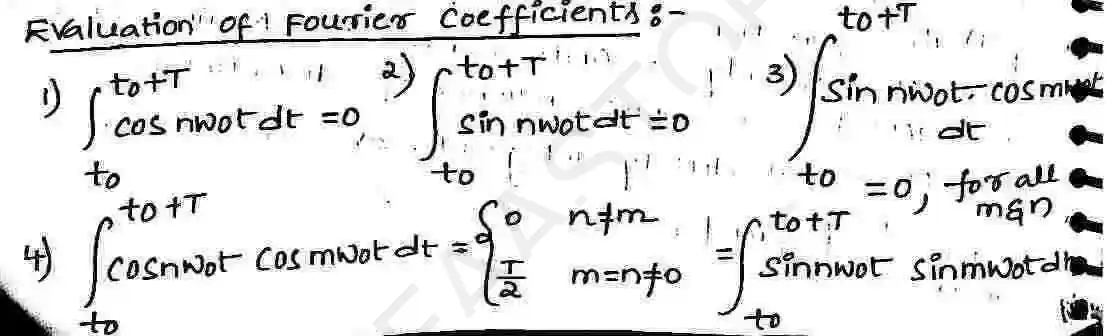 Evaluation of Fourier Coefficients :-
1) ∫_{to}^{to+T} cos nwot dt = 0 2) ∫_{to}^{to+T} sin nwot dt = 0 3) ∫_{to}^{to+T} sin nwot. cos mwot dt = 0; for all m & n
4) ∫_{to}^{to+T} cosnwot cos mwot dt = { 0 n≠m, T/2 m=n≠0 = ∫_{to}^{to+T} sinnwot sinmwot dt